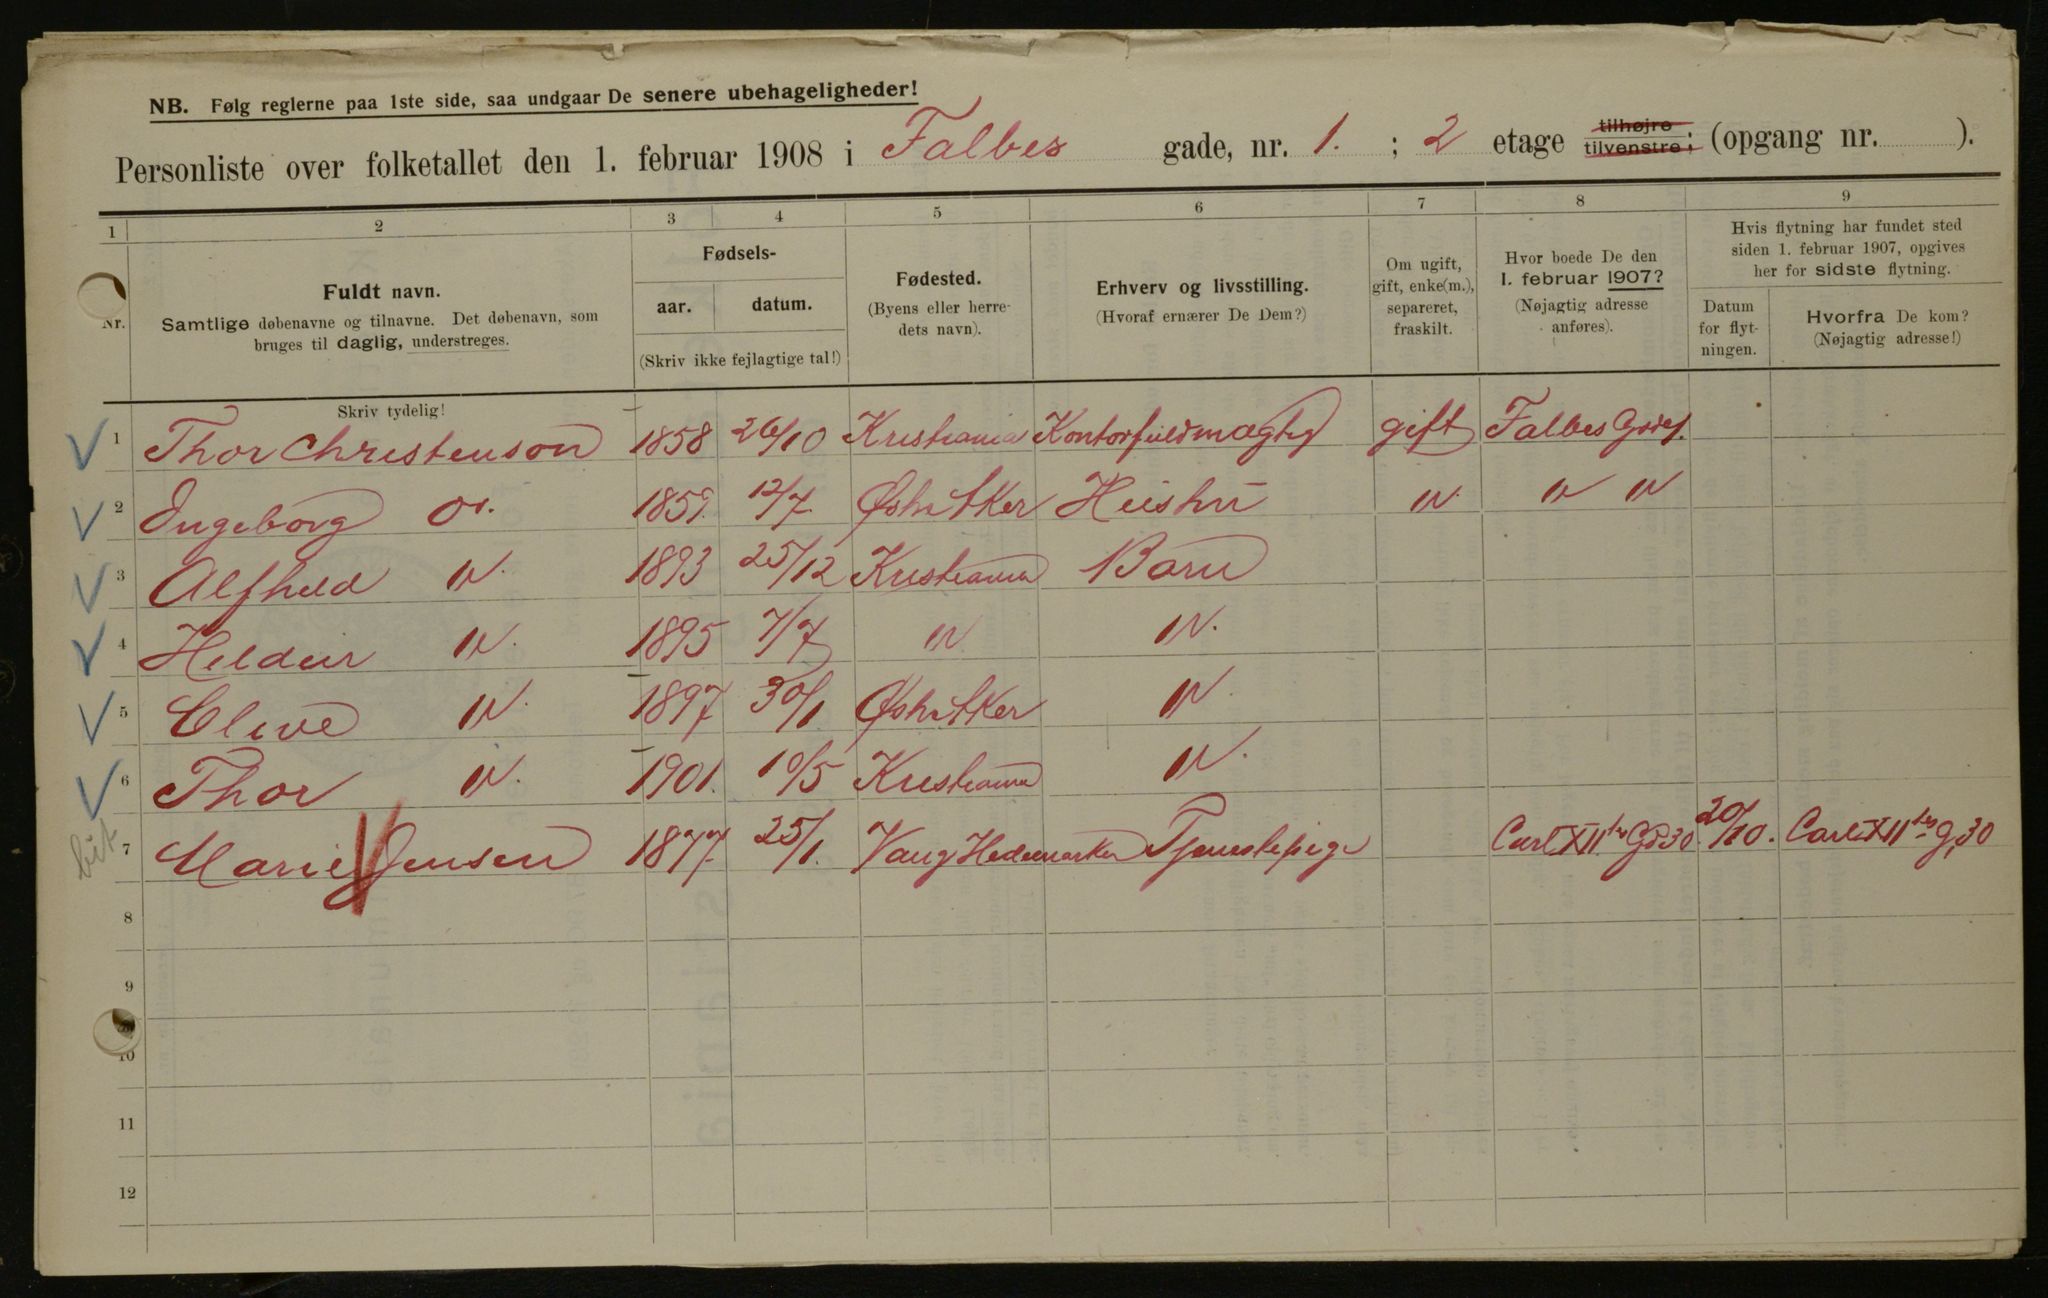 NB. Følg reglerne paa 1ste side, saa undgaar De senere ubehageligheder!
Personliste over folketallet den 1. februar 1908 i Falbes gade, nr. 1. ; 2 etage tilhøjre tilvenstre; (opgang nr. ).
1 2 3 4 5 6 7 8 9
Nr.
Fuldt navn.
Samtlige døbenavne og tilnavne. Det døbenavn, som
bruges til daglig, understreges.
Skriv tydelig!
Fødsels-
aar. datum.
(Skriv ikke fejlagtige tal!)
Fødested.
(Byens eller herre-
dets navn).
Erhverv og livsstilling.
(Hvoraf ernærer De Dem?)
Om ugift,
gift, enke(m.),
separeret,
fraskilt.
Hvor boede De den
1. februar 1907?
(Nøjagtig adresse
anføres).
Hvis flytning har fundet sted
siden 1. februar 1907, opgives
her for sidste flytning.
Datum
for flyt-
ningen.
Hvorfra De kom?
(Nøjagtig adresse!)
1 Thor Christenson 1858 26/10 Kristiania Kontorfuldmægtig gift Falbes
2 Ingeborg 1859. 12/7. Aker " " "
3 Alfhild " 1893 25/12 Kristiania Barn
4 " 1895 7/7 " "
5 " 1897 30/1 Aker "
6 Thor " 1901. 10/5 Kristiania "
bit 7 Marie Jensen 1877. 25/1. Vang Hedemarken Tjenestepige Carl XII tes Gd 30 20/10. Carl XII tes G. 30
8
9
10
11
12